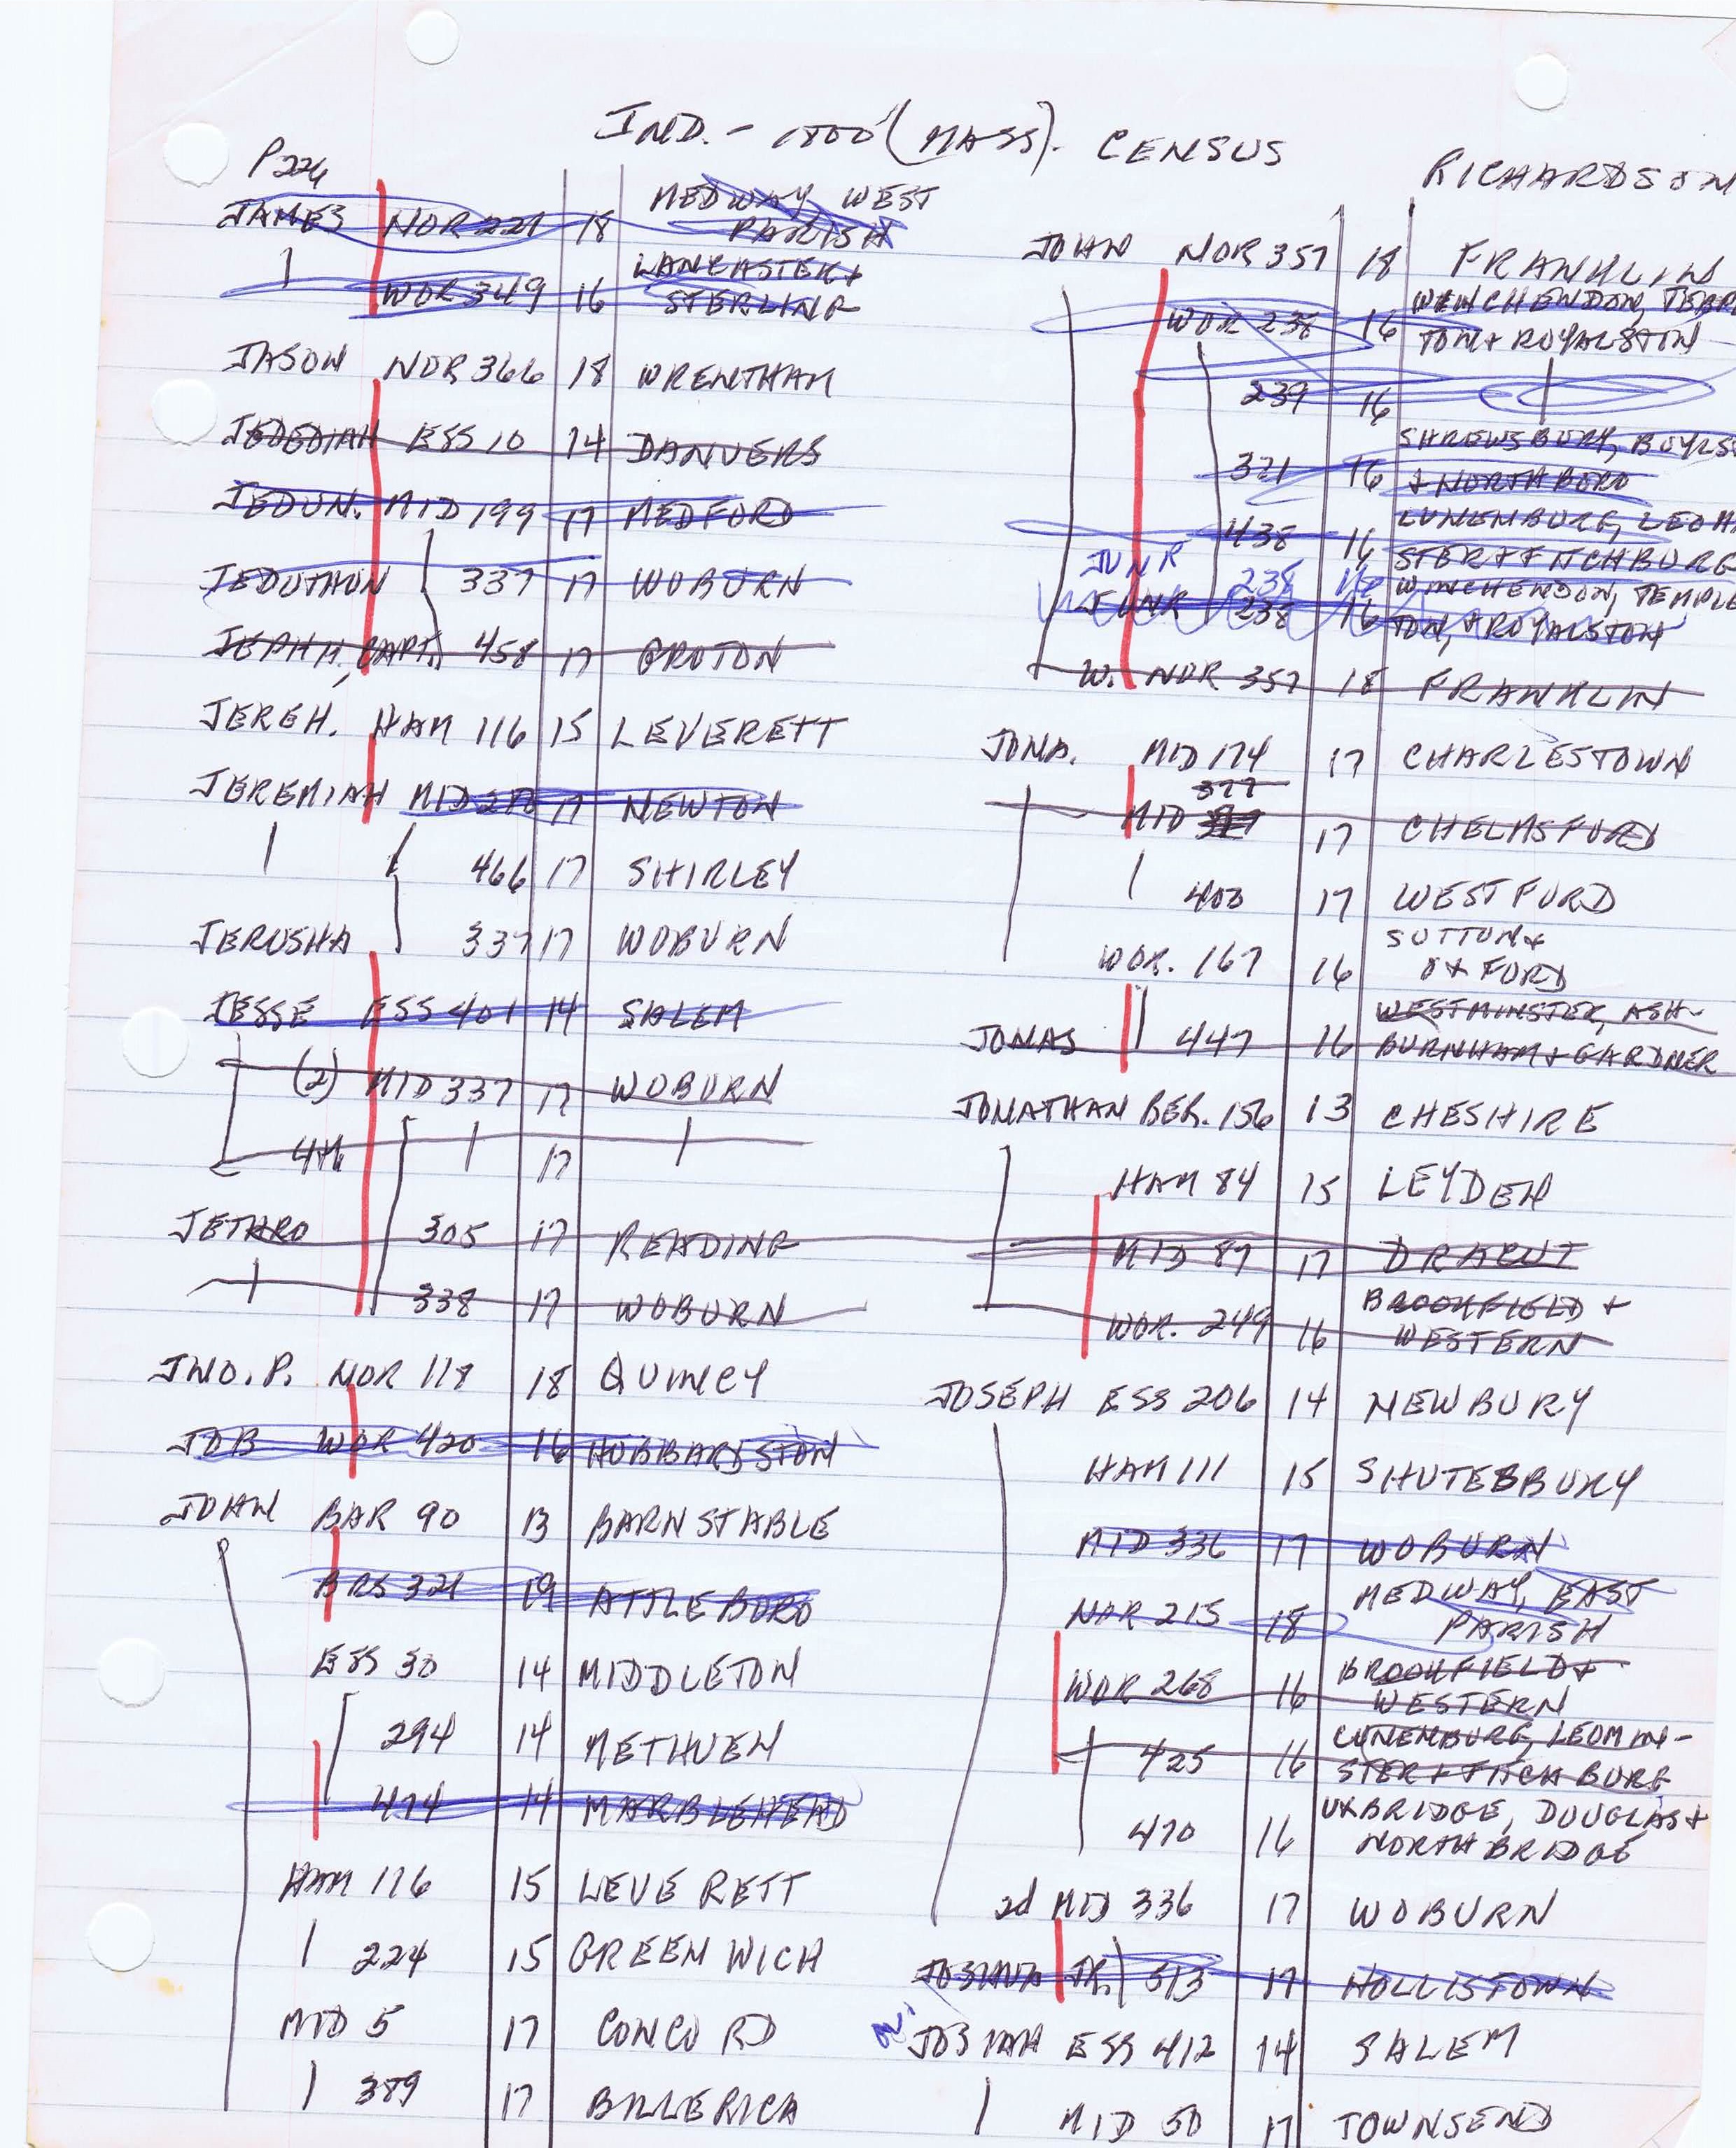 IND. - 1800 (MASS). CENSUS
RICHARDSON
P226
JAMES NOR 221 18 MEDWAY WEST
PARISH
WOR 349 16 LANCASTER +
STERLING
JASON NOR 366 18 WRENTHAM
JEDEDIAH ESS 10 14 DANVERS
JEDUN. MID 199 17 MEDFORD
JEDUTHUN 337 17 WOBURN
JEPHH, CAPT. 458 17 GROTON
JEREH. HAM 116 15 LEVERETT
JEREMIAH MID 270 17 NEWTON
466 17 SHIRLEY
JERUSHA 337 17 WOBURN
JESSE ESS 401 14 SALEM
(2) MID 337 17 WOBURN
4th 17
JETHRO 305 17 READING
338 17 WOBURN
JNO. P. NOR 118 18 QUINCY
JOB WOR 420 16 HUBBARDSTON
JOHN BAR 90 13 BARNSTABLE
BRS 321 19 ATTLEBORO
ESS 30 14 MIDDLETON
294 14 METHUEN
474 14 MARBLEHEAD
HAM 116 15 LEVERETT
224 15 GREENWICH
MID 5 17 CONCORD
389 17 BILLERICA
JOHN NOR 357 18 FRANKLIN
WOR 238 16 WINCHENDON, TEMP
TON + ROYALSTON
239 16
321 16 SHREWSBURY, BOYLS
+ NORTHBORO
438 16 LUNENBURG, LEOM
STER + FITCHBURG
JUNR 238 16 WINCHENDON, TEMPLE
JUNR 238 16 TON, + ROYALSTON
W. NOR 357 18 FRANKLIN
JONA. MID 174 17 CHARLESTOWN
377
MID 17 CHELMSFORD
400 17 WESTFORD
WOR. 167 16 SUTTON +
OXFORD
JONAS 447 16 WESTMINSTER, ASH-
BURNHAM + GARDNER
JONATHAN BER. 156 13 CHESHIRE
HAM 84 15 LEYDEN
MID 87 17 DRACUT
WOR. 249 16 BROOKFIELD +
WESTERN
JOSEPH ESS 206 14 NEWBURY
HAM 111 15 SHUTESBURY
MID 336 17 WOBURN
NOR 215 18 MEDWAY, EAST
PARISH
WOR 268 16 BROOKFIELD +
WESTERN
425 16 LUNENBURG, LEOMIN-
STER + FITCHBURG
470 16 UXBRIDGE, DOUGLAS +
NORTHBRIDGE
2d MID 336 17 WOBURN
JOSHUA JR.) 513 17 HOLLISTOWN
JOSIAH ESS 412 14 SALEM
MID 50 17 TOWNSEND